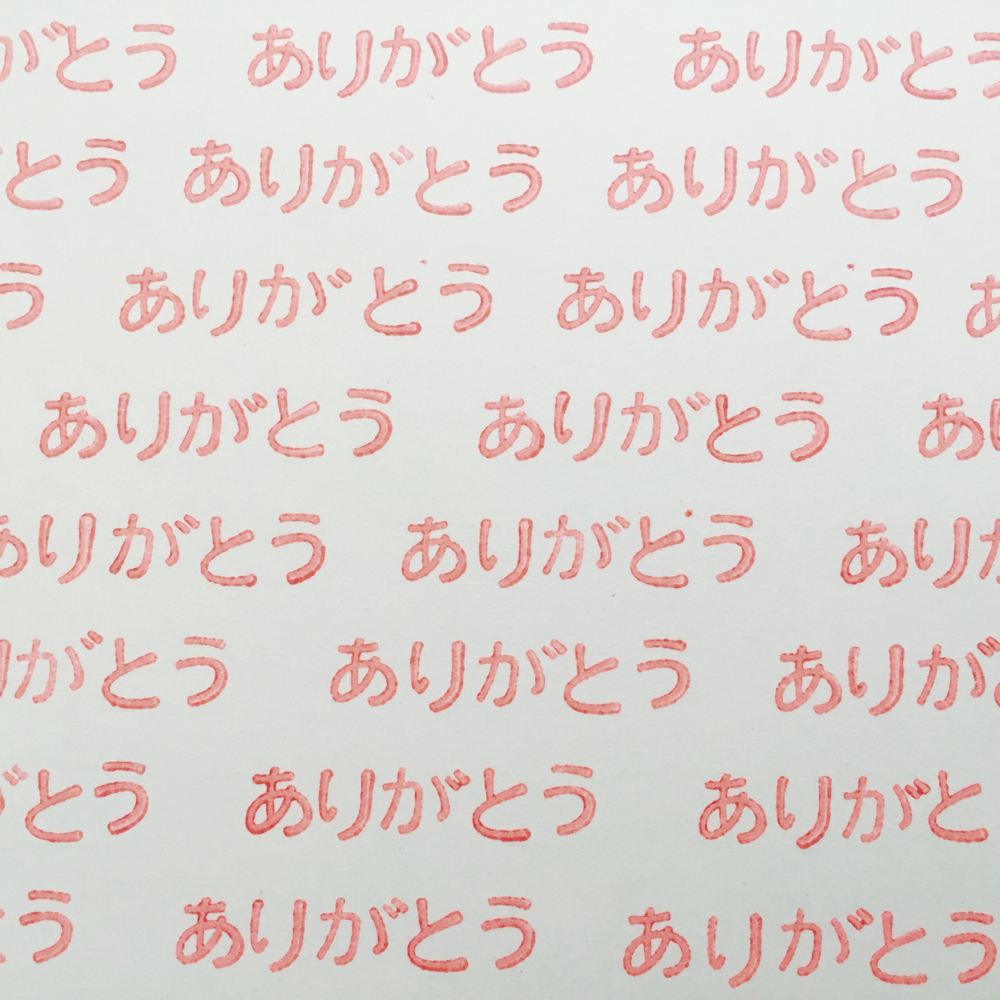 がとう ありがとう ありがとう
とう ありがとう ありがとう
う ありがとう ありがとう あ
ありがとう ありがとう あ
ありがとう ありがとう ありが
りがとう ありがとう ありが
がとう ありがとう ありがと
う ありがとう ありがとう